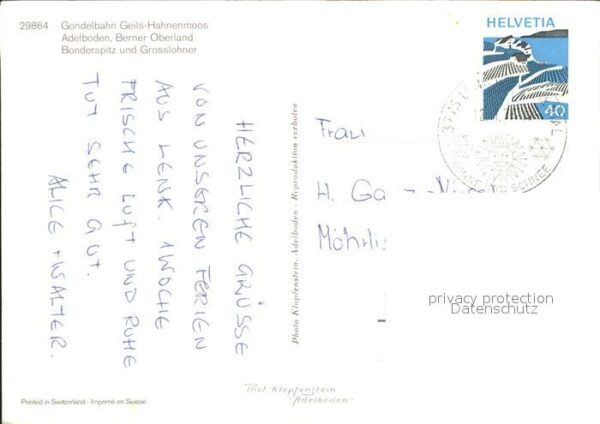 29864 Gondelbahn Geils-Hahnenmoos
Adelboden, Berner Oberland
Bonderspitz und Grosslohner
HERZLICHE GRÜSSE
VON UNSEREN FERIEN
AUS LENK. 1 WOCHE
FRISCHE LUFT UND RUHE
TUT SEHR GUT.
ALICE + WALTER.
Photo Klopfenstein, Adelboden - Reproduktion verboten
HELVETIA
40
SCHNEE
Frau
H.
privacy protection
Datenschutz
Phot Klopfenstein
"Adelboden"
Printed in Switzerland - Imprimé en Suisse